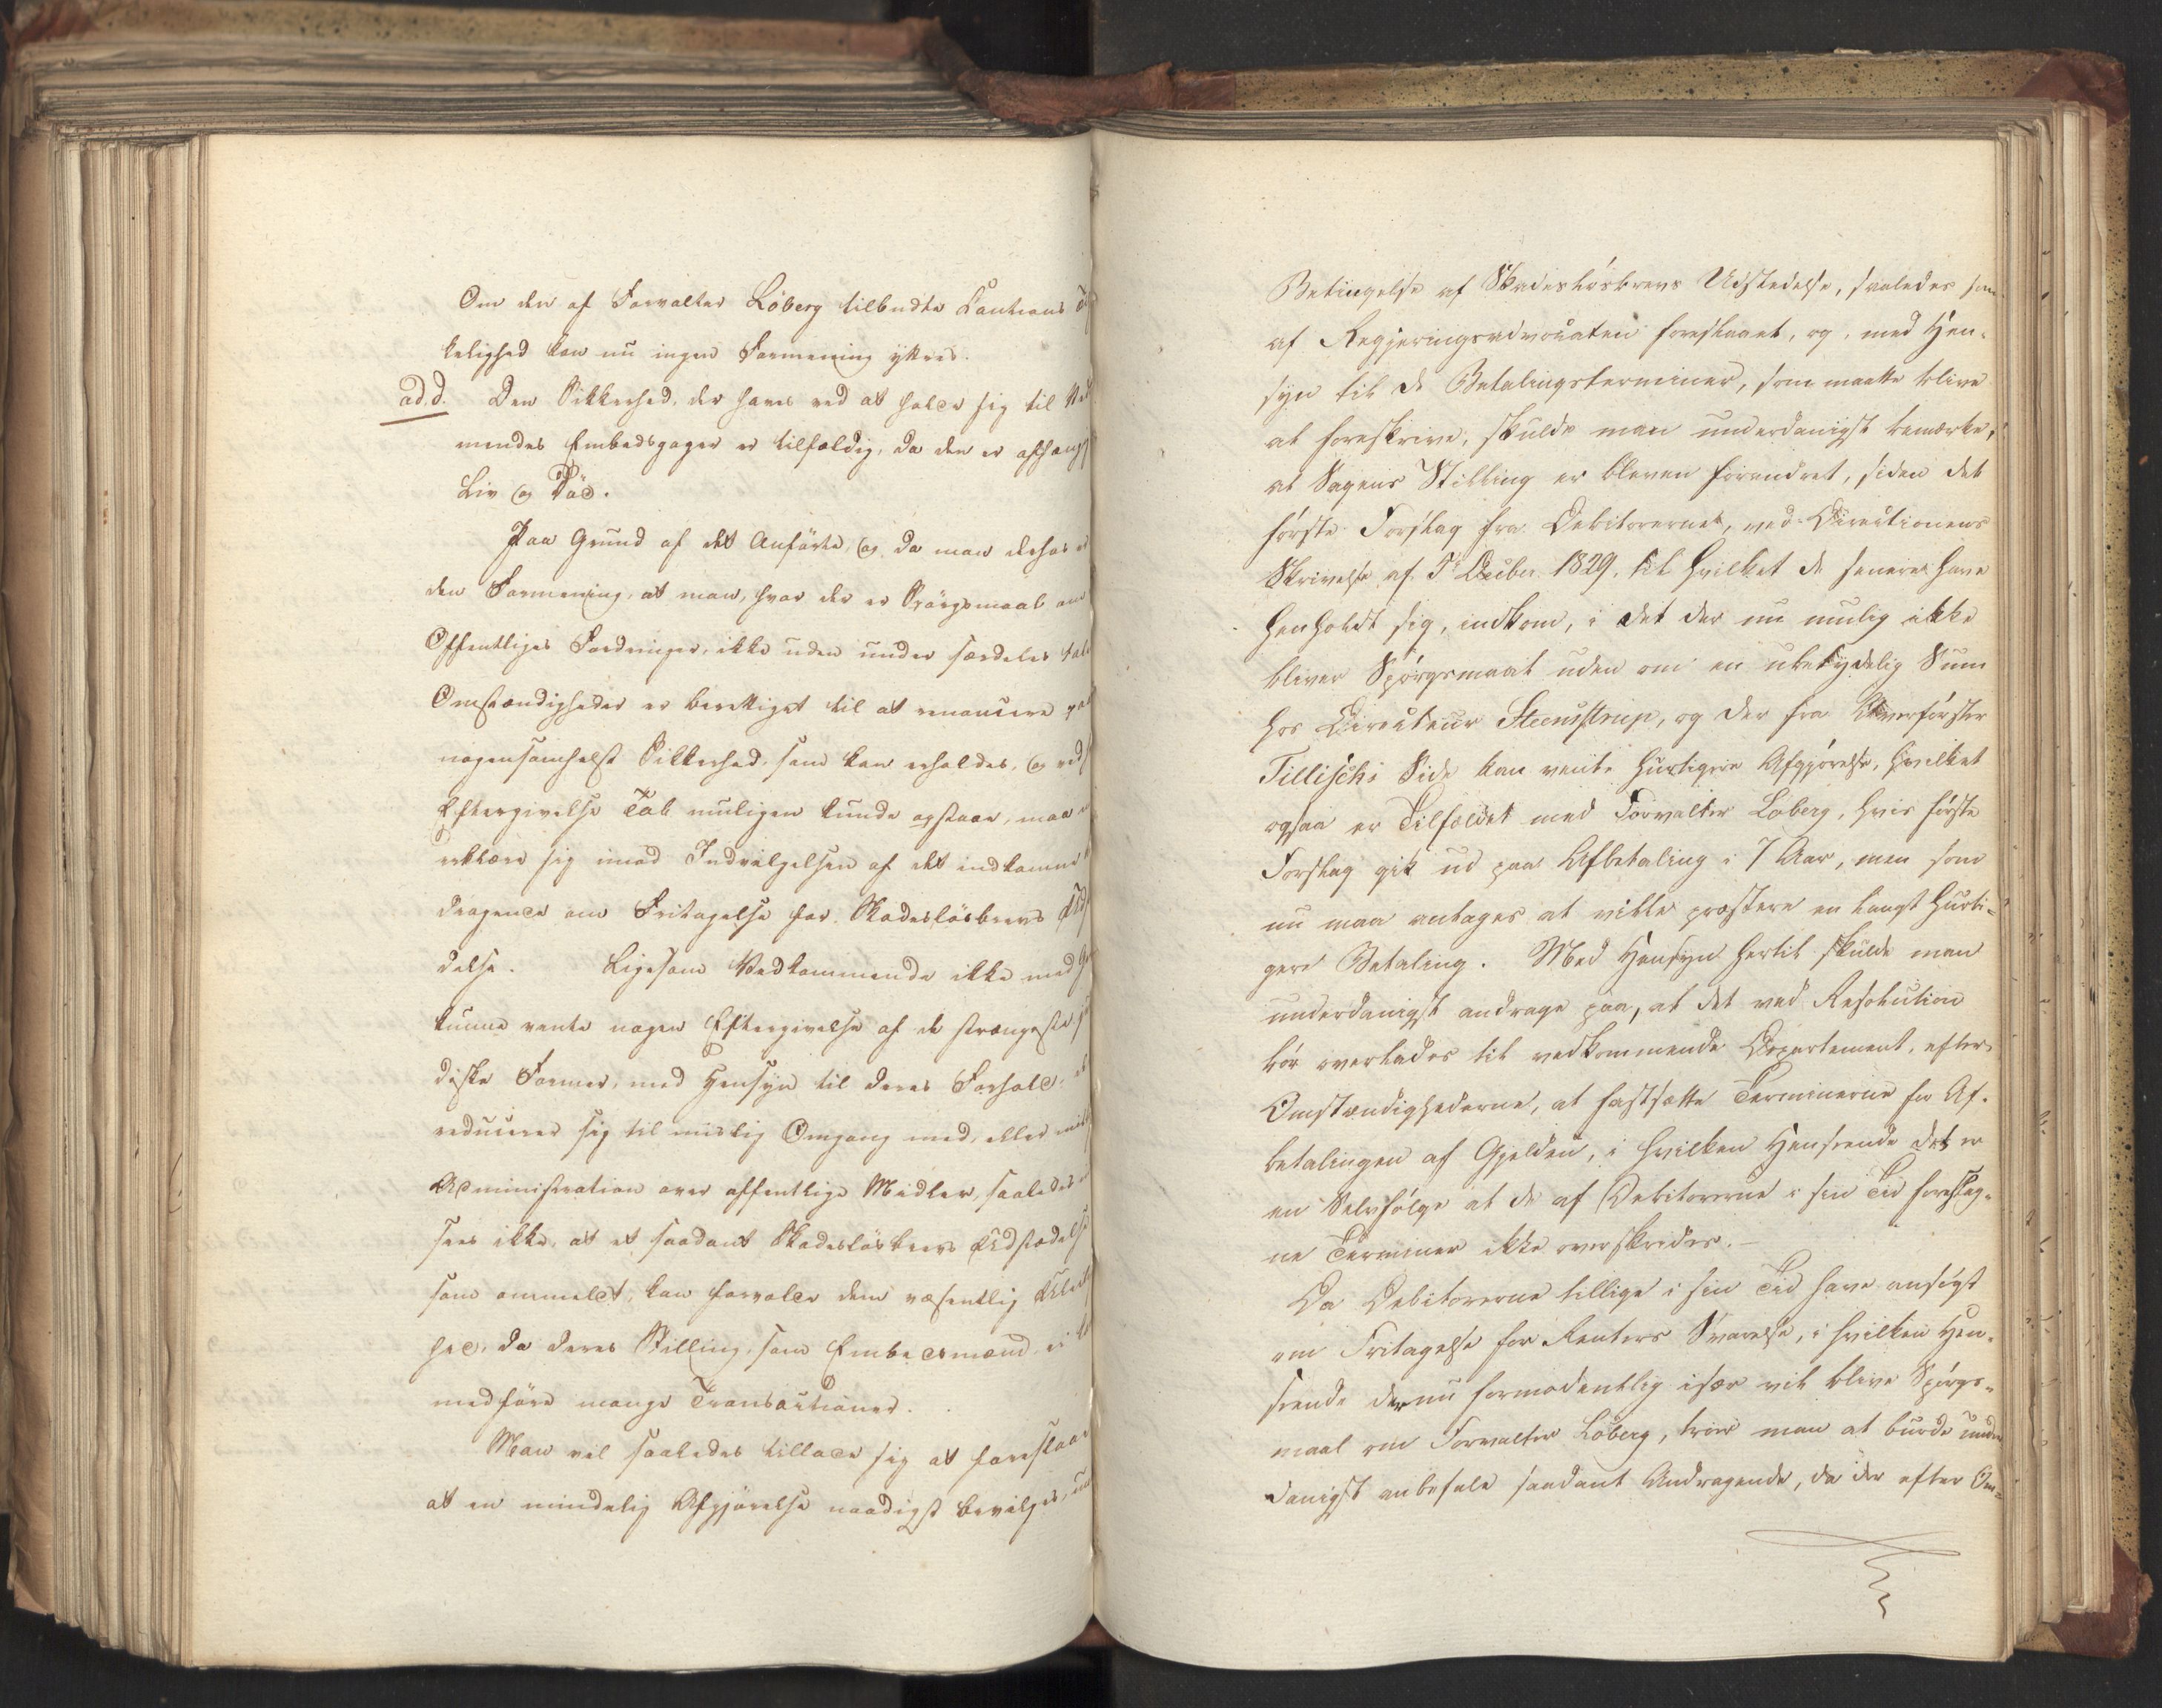 Om den af Forvalter Löberg tilbudte Cautions
kelighed kan nu ingen Formening yttres.
ad. d. Den Sikkerhed, der haves ved at holde sig til
mendes Embedsgager er tilfældig, da den er afhængi
Liv og Död.
Paa Grund af det Anförte, og da man derhos er
den Formening, at man, hvor der er Spörgsmaal om
Offentliges Fordringer, ikke uden under særdeles tale
Omstændigheder er berettiget til at renoncere paa
nogensomhelst Sikkerhed, som kan erholdes, og ved
Eftergivelse Tab muligen kunde opstaae, maa
erklære sig imod Indvilgelsen af det indkomne
dragende om Fritagelse for Skadeslösbrevs Udst
delse. Ligesom Vedkommende ikke med
kunne vente nogen Eftergivelse af de strængeste
diske Former, med Hensyn til deres Forhold,
reducerer sig til mislig Omgang med, eller
Administration over offentlige Midler, saaledes
sees ikke, at et saadant Skadeslösbrevs Udstædelse
som ommeldt, kan forvolde dem væsentlig
hed, da deres Stilling, som Embedsmænd, ei
medföre mange Transactioner.
Man vil saaledes tillade sig at foreslaae
at en mindelig Afgjörelse naadigst bevilges,
Betingelse af Skadeslösbrevs Udstedelse, saaledes som
af Regjeringsadvocaten foreslaaet, og, med Hen-
syn til de Betalingsterminer, som maatte blive
at foreskrive, skulde man underdanigst bemærke,
at Sagens Stilling er bleven forandret, siden det
förste Forslag fra Debitorerne, ved Directionens
Skrivelse af 5 Decbr. 1829, til hvilket de senere have
henholdt sig, indkom, i det der nu mulig ikke
bliver Spörgsmaal uden om en ubetydelig Sum
hos Directeur Steenstrup, og der fra Overförster
Tillisch's Side kan vente hurtigere Afgjörelse, hvilket
ogsaa er Tilfældet med Forvalter Löberg, hvis förste
Forslag gik ud paa Afbetaling i 7 Aar, men som
nu maa antages at ville præstere en langt hurti-
gere Betaling. Med Hensyn hertil skulde man
underdanigst andrage paa, at det ved Resolution
bör overlades til vedkommende Departement, efter
Omstændighederne, at fastsætte Terminerne for Af-
betalingen af Gjelden, i hvilken Henseende det er
en Selvfölge at de af Debitorerne i sin Tid foreslag-
ne Terminer ikke overskrides.
Da Debitorerne tillige i sin Tid have ansögt
om Fritagelse for Renters Svarelse, i hvilken Hen-
seende der nu formodentlig især vil blive Spörgs-
maal om Forvalter Löberg, troer man at burde under
danigst anbefale saadant Andragende, da der efter Om-